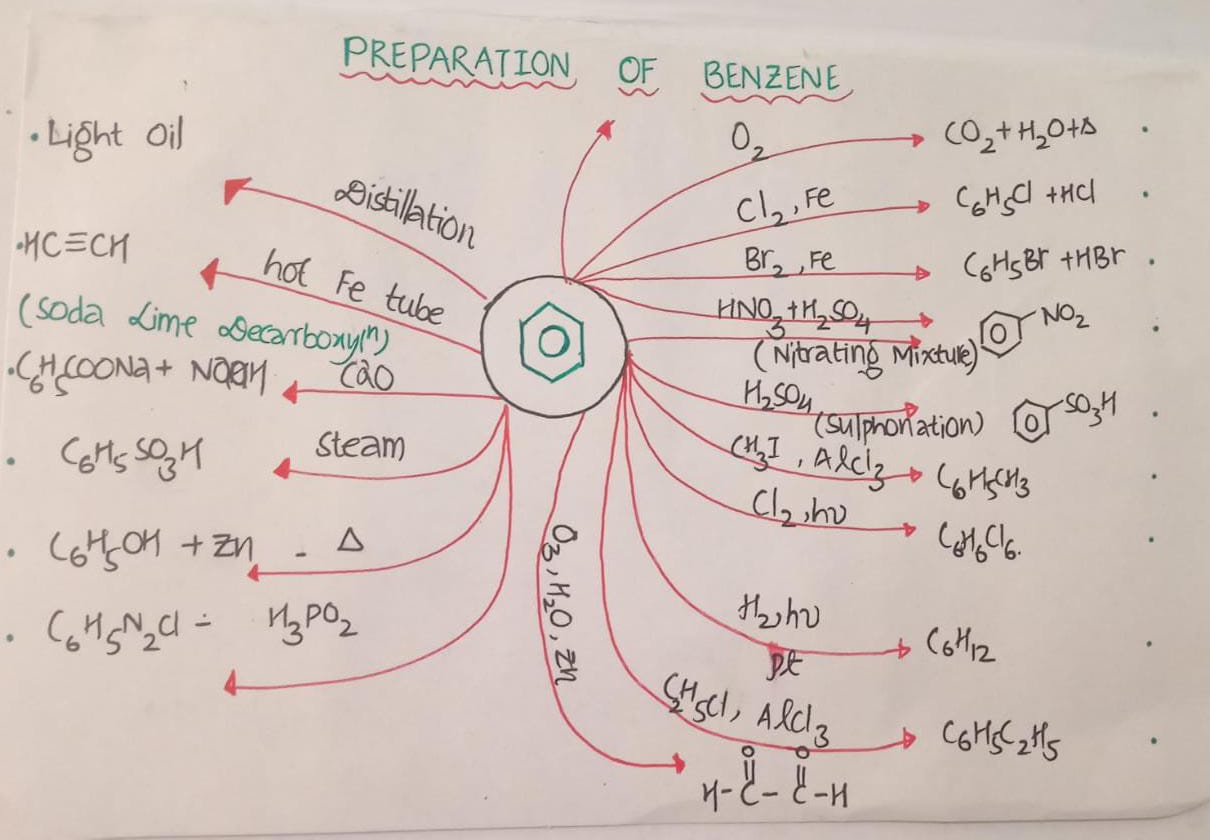 PREPARATION OF BENZENE
• Light Oil
Distillation
• HC≡CH
hot Fe tube
(Soda Lime Decarboxyⁿ)
• C₆H₅COONa + NaOH
CaO
• C₆H₅SO₃H
steam
• C₆H₅OH + Zn - Δ
• C₆H₅N₂Cl ÷ H₃PO₂
O₂
CO₂ + H₂O + Δ •
Cl₂, Fe
C₆H₅Cl + HCl •
Br₂, Fe
C₆H₅Br + HBr •
HNO₃ + H₂SO₄
(Nitrating Mixture)
NO₂ •
H₂SO₄
(Sulphonation)
SO₃H •
CH₃I, AlCl₃
C₆H₅CH₃ •
Cl₂, hν
C₆H₆Cl₆. •
H₂, hν
Pt
C₆H₁₂ •
C₂H₅Cl, AlCl₃
C₆H₅C₂H₅ •
O₃, H₂O, Zn
O O
H-C-C-H